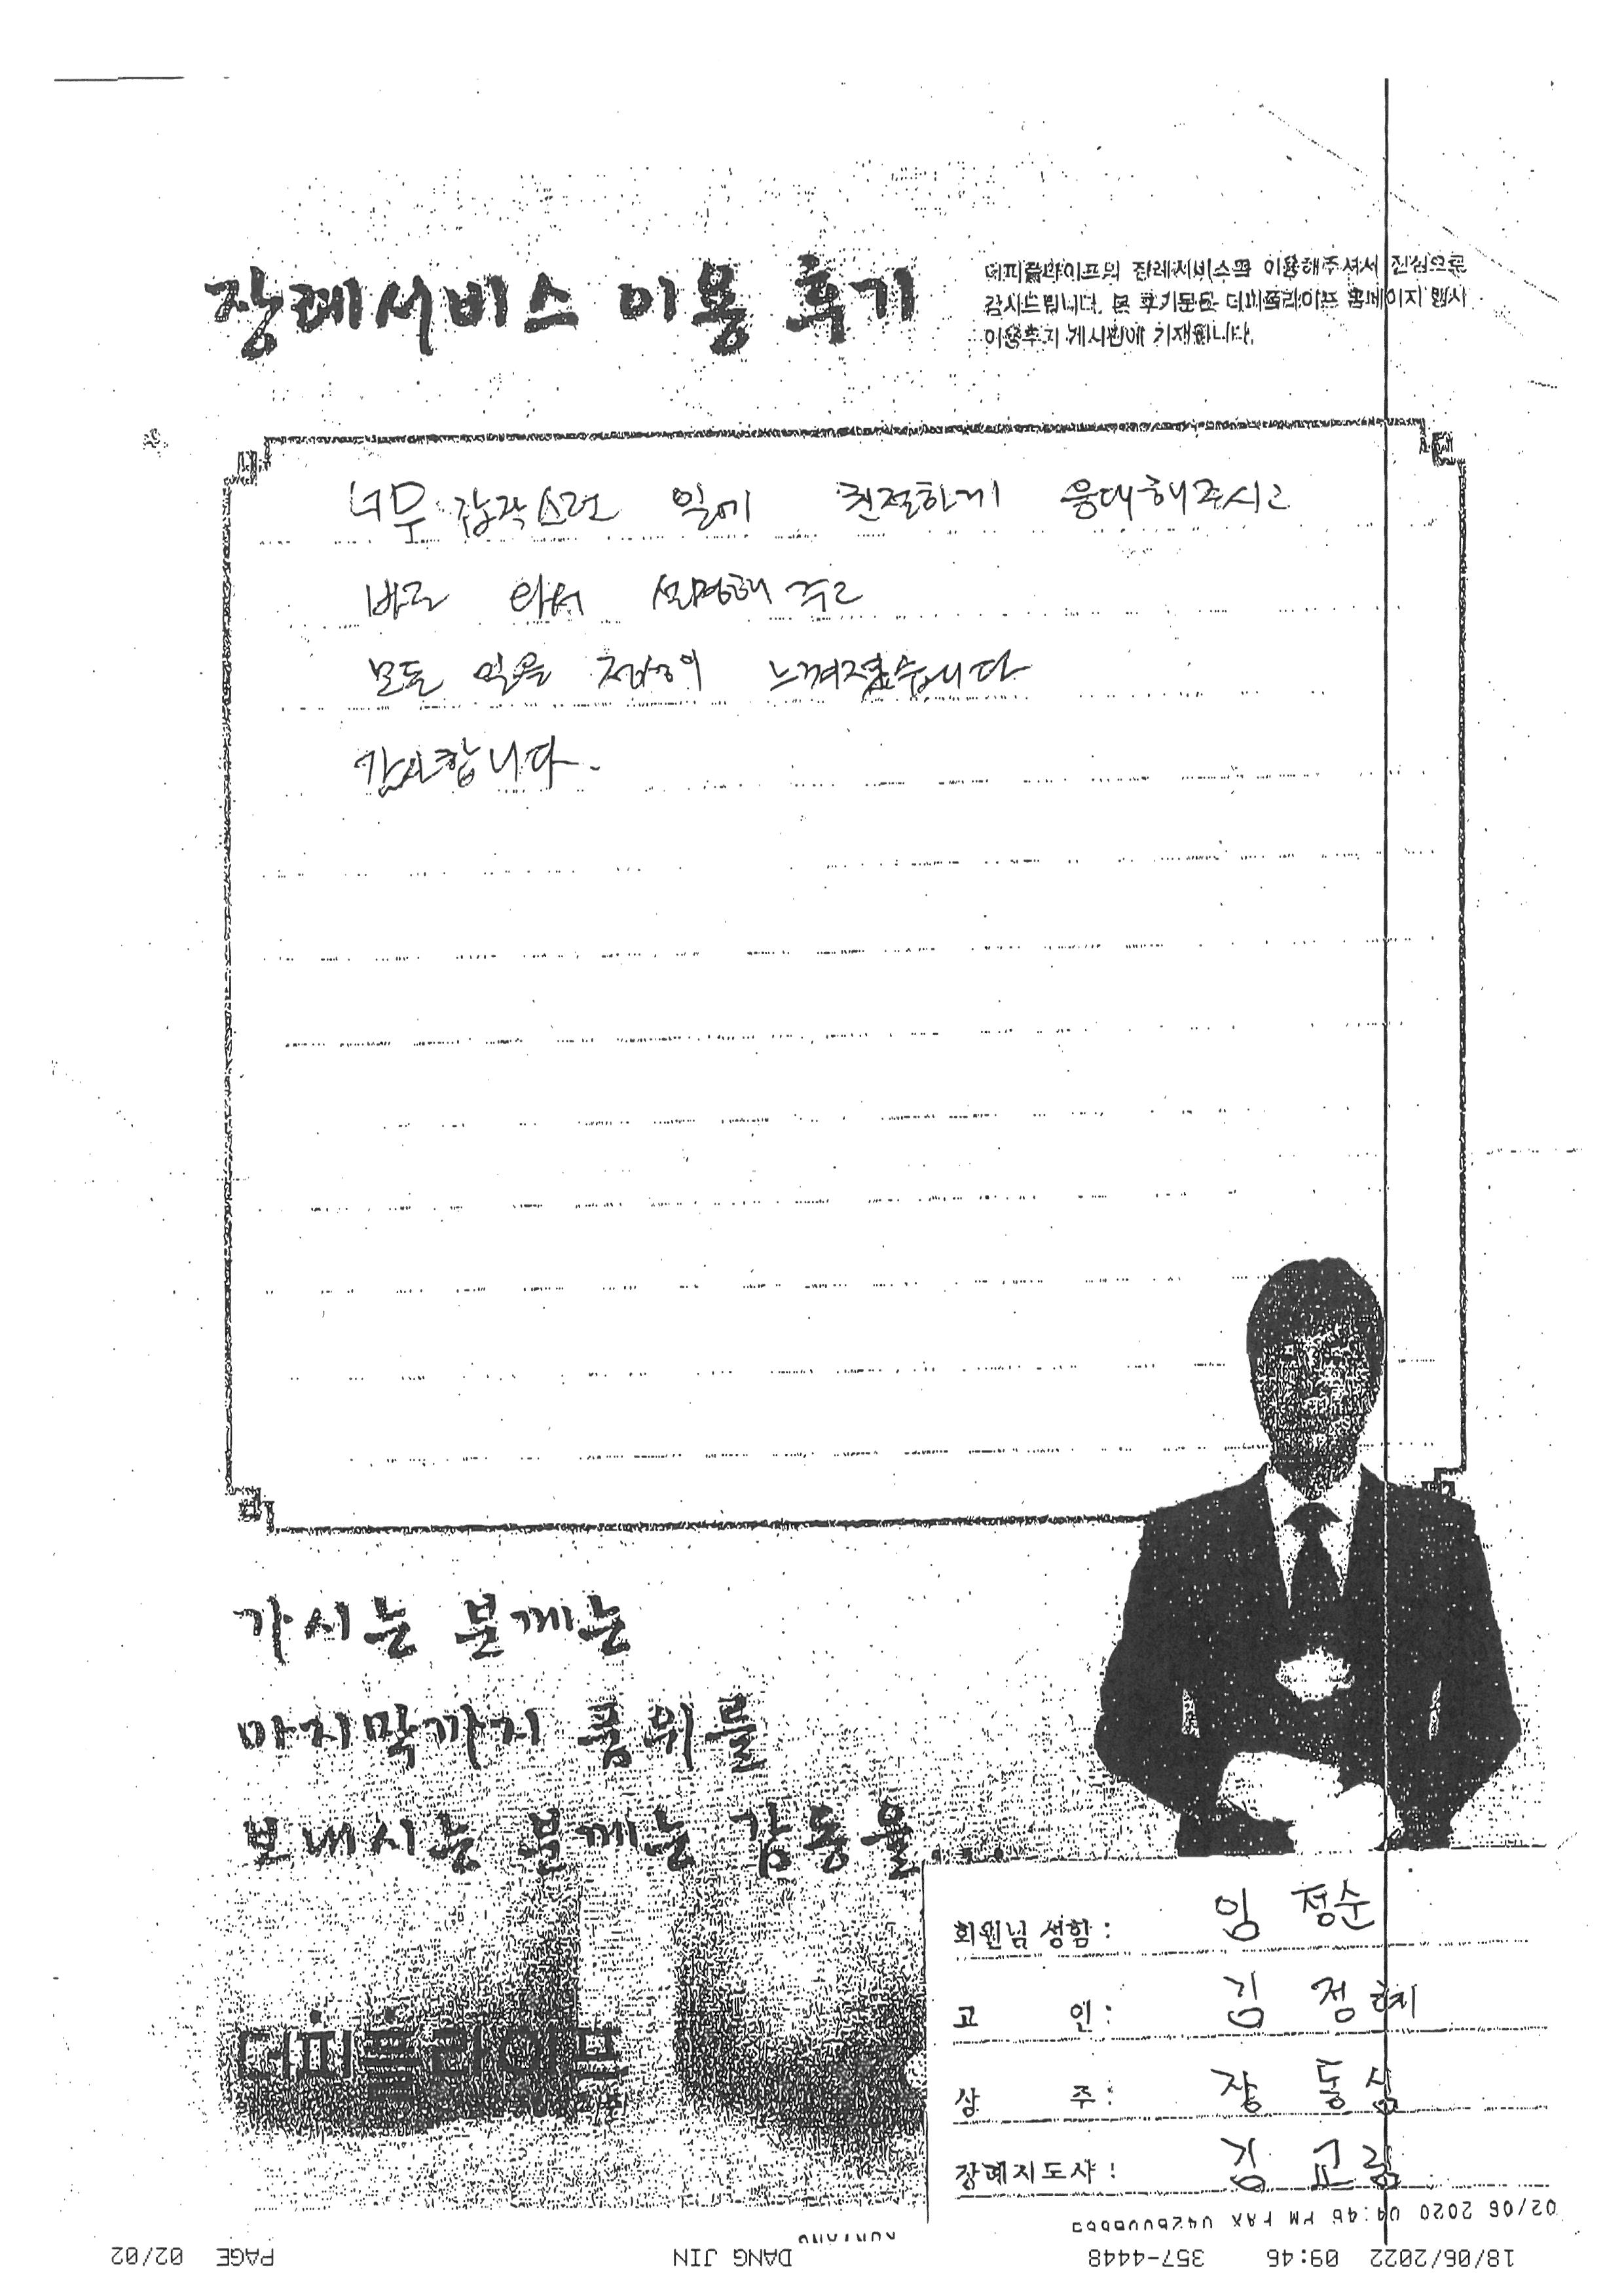 장례서비스 이용 후기
더피플라이프의 장례서비스를 이용해주셔서 진심으로
감사드립니다. 본 후기문은 더피플라이프 홈페이지 행사
이용후기 게시판에 기재됩니다.
너무 갑작스런 일에 친절하게 응대해주시고
바로 와서 설명해 주고
모든 일을 정성이 느껴졌습니다
감사합니다.
가시는 분께는
마지막까지 품위를
보내시는 분께는 감동을...
더피플라이프
회원님 성함 : 임 정순
고 인 : 김 정
상 주 : 장 동심
장례지도사 : 김 교림
02/06 2020 04:46 PM FAX
18/06/2022 09:46 357-4448 DANG JIN PAGE 02/02